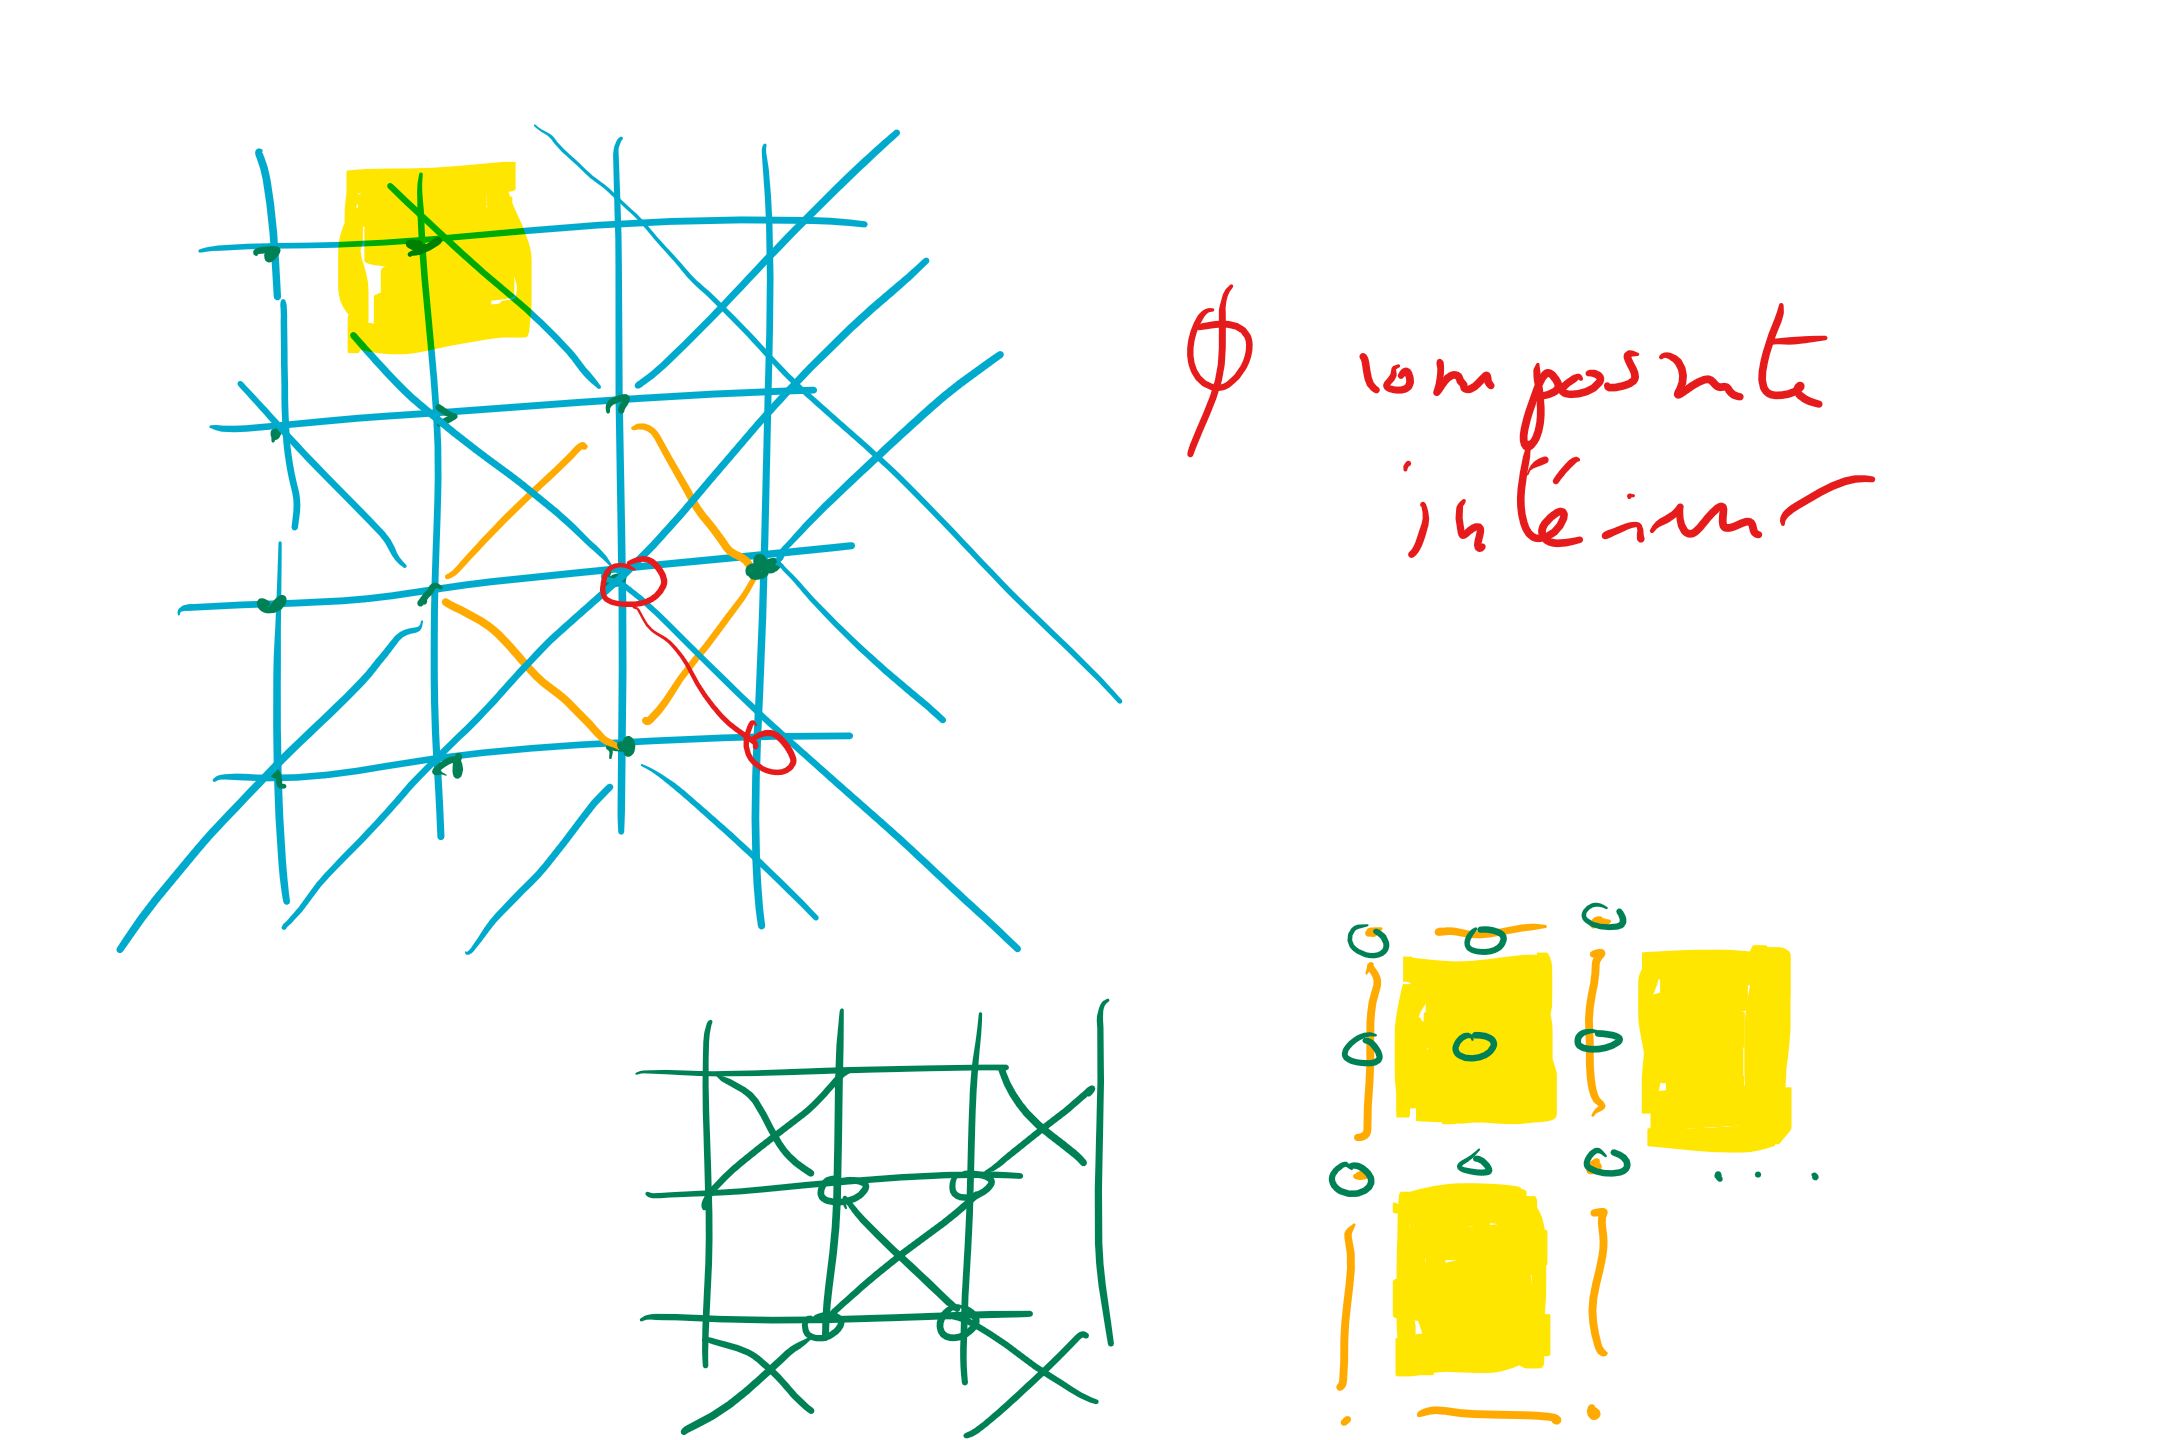 ϕ composante
intérieur